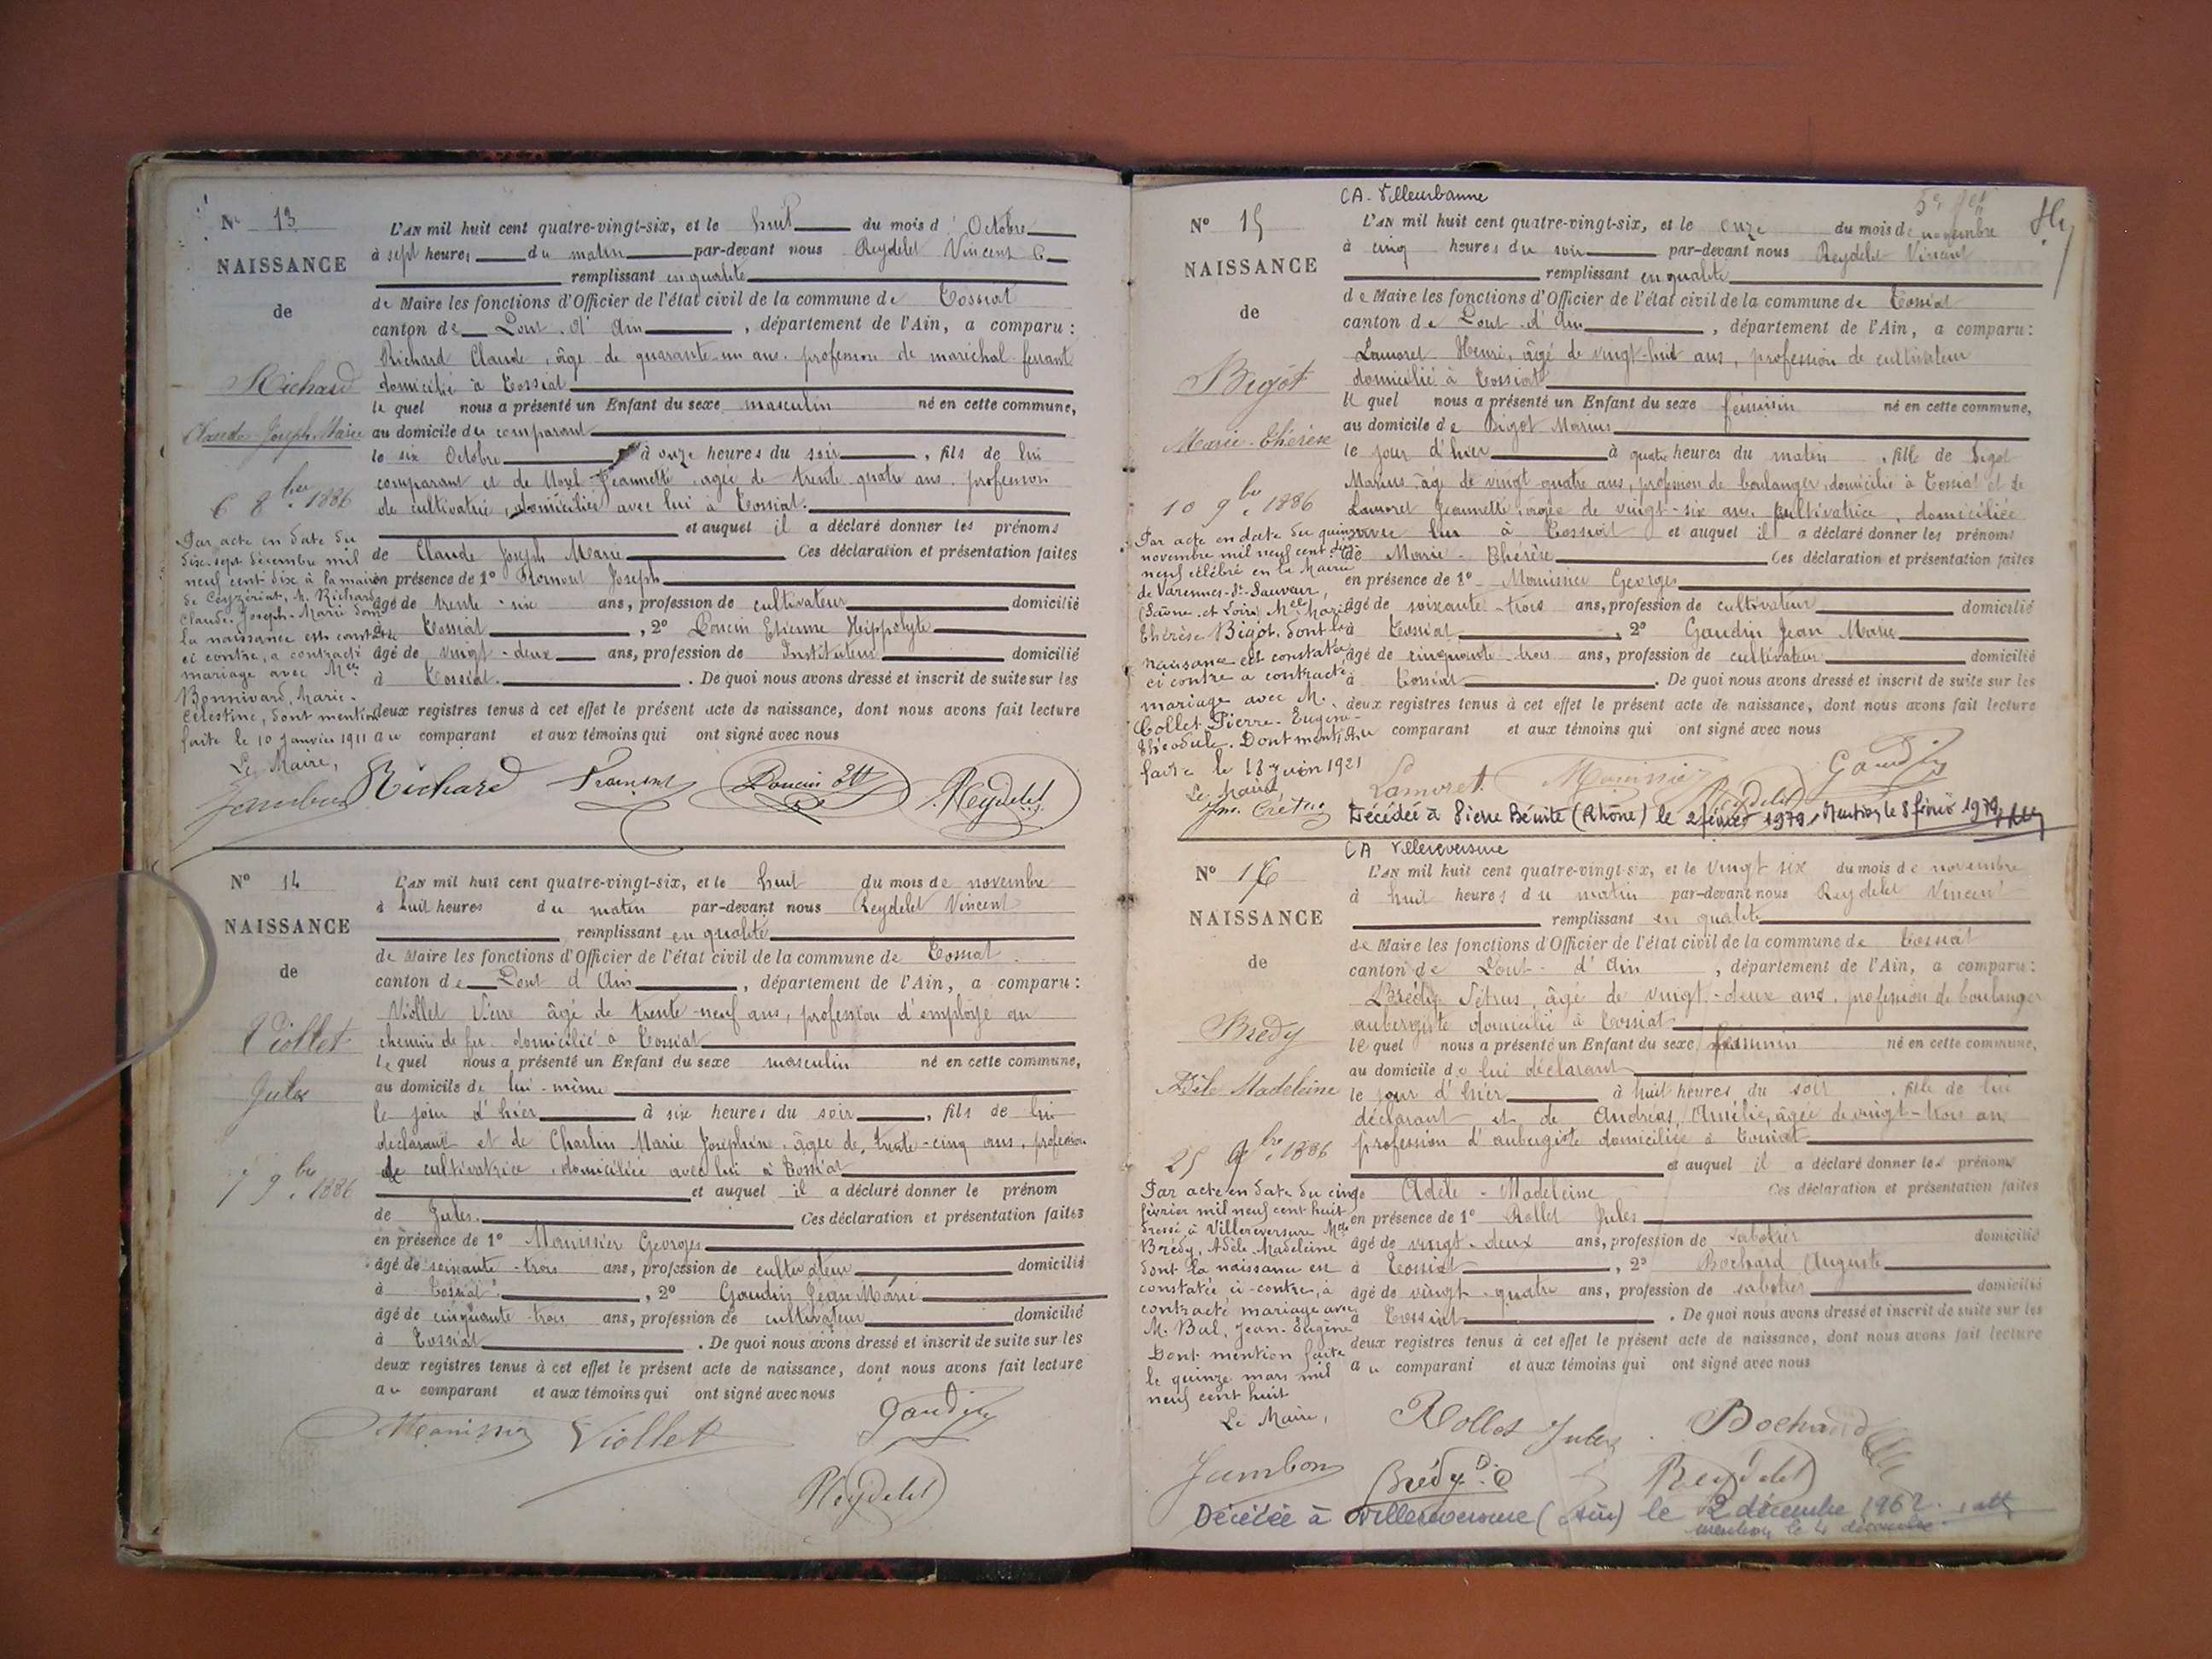 Nº 13
NAISSANCE
de
Richard
Claude-Joseph-Marie
6 8bre 1886
Par acte en date du
dix-sept décembre mil
neuf cent dix à la mairie
de Ceyzériat, M. Richard
Claude-Joseph-Marie dont
la naissance est constatée
ci contre, a contracté
mariage avec Melle
Bonnivard, Marie-
Célestine, dont mention
faite le 10 Janvier 1911
Le Maire,
Jambon
L'AN mil huit cent quatre-vingt-six, et le huit du mois d'Octobre
à sept heures du matin par-devant nous Reydelet Vincent
remplissant en qualité
de Maire les fonctions d'Officier de l'état civil de la commune de Tossiat
canton de Pont d'Ain, département de l'Ain, a comparu:
Richard Claude, âgé de quarante-un ans, profession de maréchal-ferrant
domicilié à Tossiat
lequel nous a présenté un Enfant du sexe masculin né en cette commune,
au domicile du comparant
le six Octobre à onze heures du soir, fils de lui
comparant et de Jeannette, agée de trente quatre ans, profession
de cultivatrice, domiciliée avec lui à Tossiat.
et auquel il a déclaré donner les prénoms
de Claude Joseph Marie Ces déclaration et présentation faites
en présence de 1º Joseph
âgé de trente-six ans, profession de cultivateur domicilié
à Tossiat, 2º Poncin Etienne Hippolyte
âgé de vingt-deux ans, profession de Instituteur domicilié
à Tossiat. De quoi nous avons dressé et inscrit de suite sur les
deux registres tenus à cet effet le présent acte de naissance, dont nous avons fait lecture
au comparant et aux témoins qui ont signé avec nous
Richard Poncin Ett Reydelet
Nº 14
NAISSANCE
de
Viollet
Jules
7 9bre 1886
L'AN mil huit cent quatre-vingt-six, et le huit du mois de novembre
à huit heures du matin par-devant nous Reydelet Vincent
remplissant en qualité
de Maire les fonctions d'Officier de l'état civil de la commune de Tossiat
canton de Pont d'Ain, département de l'Ain, a comparu:
Viollet Pierre âgé de trente-neuf ans, profession d'employé au
chemin de fer domicilié à Tossiat
lequel nous a présenté un Enfant du sexe masculin né en cette commune,
au domicile de lui-même
le jour d'hier à six heures du soir, fils de lui
déclarant et de Charlin Marie Joséphine, âgée de trente-cinq ans, profession
de cultivatrice, domiciliée avec lui à Tossiat
et auquel il a déclaré donner le prénom
de Jules. Ces déclaration et présentation faites
en présence de 1º Monissier Georges
âgé de soixante-trois ans, profession de cultivateur domicilié
à Tossiat, 2º Gaudin Jean Marie
âgé de cinquante-trois ans, profession de cultivateur domicilié
à Tossiat. De quoi nous avons dressé et inscrit de suite sur les
deux registres tenus à cet effet le présent acte de naissance, dont nous avons fait lecture
au comparant et aux témoins qui ont signé avec nous
Monissier Viollet Gaudin
Reydelet
CA. Villeurbanne
Nº 15
NAISSANCE
de
Bigot
Marie-Thérèse
10 9bre 1886
Par acte en date du quinze
novembre mil neuf cent dix
neuf célébré en la Mairie
de Varennes-St-Sauveur,
(Saône-et-Loire) Melle Marie
Thérèse Bigot, dont la
naissance est constatée
ci contre a contracté
mariage avec M.
Collet Pierre-Eugène-
Théodule. Dont mention
faite le 18 Juin 1921
Le Maire,
L'AN mil huit cent quatre-vingt-six, et le onze du mois de novembre
à cinq heures du soir par-devant nous Reydelet Vincent
remplissant en qualité
de Maire les fonctions d'Officier de l'état civil de la commune de Tossiat
canton de Pont d'Ain, département de l'Ain, a comparu:
Lamoret Henri, âgé de vingt-huit ans, profession de cultivateur
domicilié à Tossiat
lequel nous a présenté un Enfant du sexe féminin né en cette commune,
au domicile de Bigot Marius
le jour d'hier à quatre heures du matin, fille de Bigot
Marius, âgé de vingt-quatre ans, profession de boulanger, domicilié à Tossiat et de
Lamoret Jeannette, âgée de vingt-six ans, cultivatrice, domiciliée
avec lui à Tossiat et auquel il a déclaré donner les prénoms
de Marie-Thérèse Ces déclaration et présentation faites
en présence de 1º Monissier Georges
âgé de soixante-trois ans, profession de cultivateur domicilié
à Tossiat, 2º Gaudin Jean Marie
âgé de cinquante-trois ans, profession de cultivateur domicilié
à Tossiat. De quoi nous avons dressé et inscrit de suite sur les
deux registres tenus à cet effet le présent acte de naissance, dont nous avons fait lecture
au comparant et aux témoins qui ont signé avec nous
Lamoret Monissier Reydelet Gaudin
Décédée à Pierre Bénite (Rhône) le 2 février 1979. Mention le 8 février 1979
CA Villereversure
Nº 16
NAISSANCE
de
Brédy
Adèle Madeleine
25 9bre 1886
Par acte en date du cinq
février mil neuf cent huit
dressé à Villereversure Melle
Brédy, Adèle Madeleine
dont la naissance est
constatée ci-contre, a
contracté mariage avec
M. Bal, Jean-Eugène
Dont mention faite
le quinze mars mil
neuf cent huit
Le Maire,
Jambon
L'AN mil huit cent quatre-vingt-six, et le vingt six du mois de novembre
à huit heures du matin par-devant nous Reydelet Vincent
remplissant en qualité
de Maire les fonctions d'Officier de l'état civil de la commune de Tossiat
canton de Pont-d'Ain, département de l'Ain, a comparu:
Brédy Pétrus, âgé de vingt-deux ans, profession de boulanger
aubergiste domicilié à Tossiat
lequel nous a présenté un Enfant du sexe féminin né en cette commune,
au domicile de lui déclarant
le jour d'hier à huit heures du soir, fille de lui
déclarant et de Andréas Amélie, âgée de vingt-trois ans
profession d'aubergiste domiciliée à Tossiat
et auquel il a déclaré donner les prénoms
de Adèle-Madeleine Ces déclaration et présentation faites
en présence de 1º Rollet Jules
âgé de vingt-deux ans, profession de sabotier domicilié
à Tossiat, 2º Bochard Auguste
âgé de vingt-quatre ans, profession de sabotier domicilié
à Tossiat. De quoi nous avons dressé et inscrit de suite sur les
deux registres tenus à cet effet le présent acte de naissance, dont nous avons fait lecture
au comparant et aux témoins qui ont signé avec nous
Rollet Jules Bochard
Brédy Reydelet
Décédée à Villereversure (Ain) le 2 décembre 1962.
mention le 4 décembre